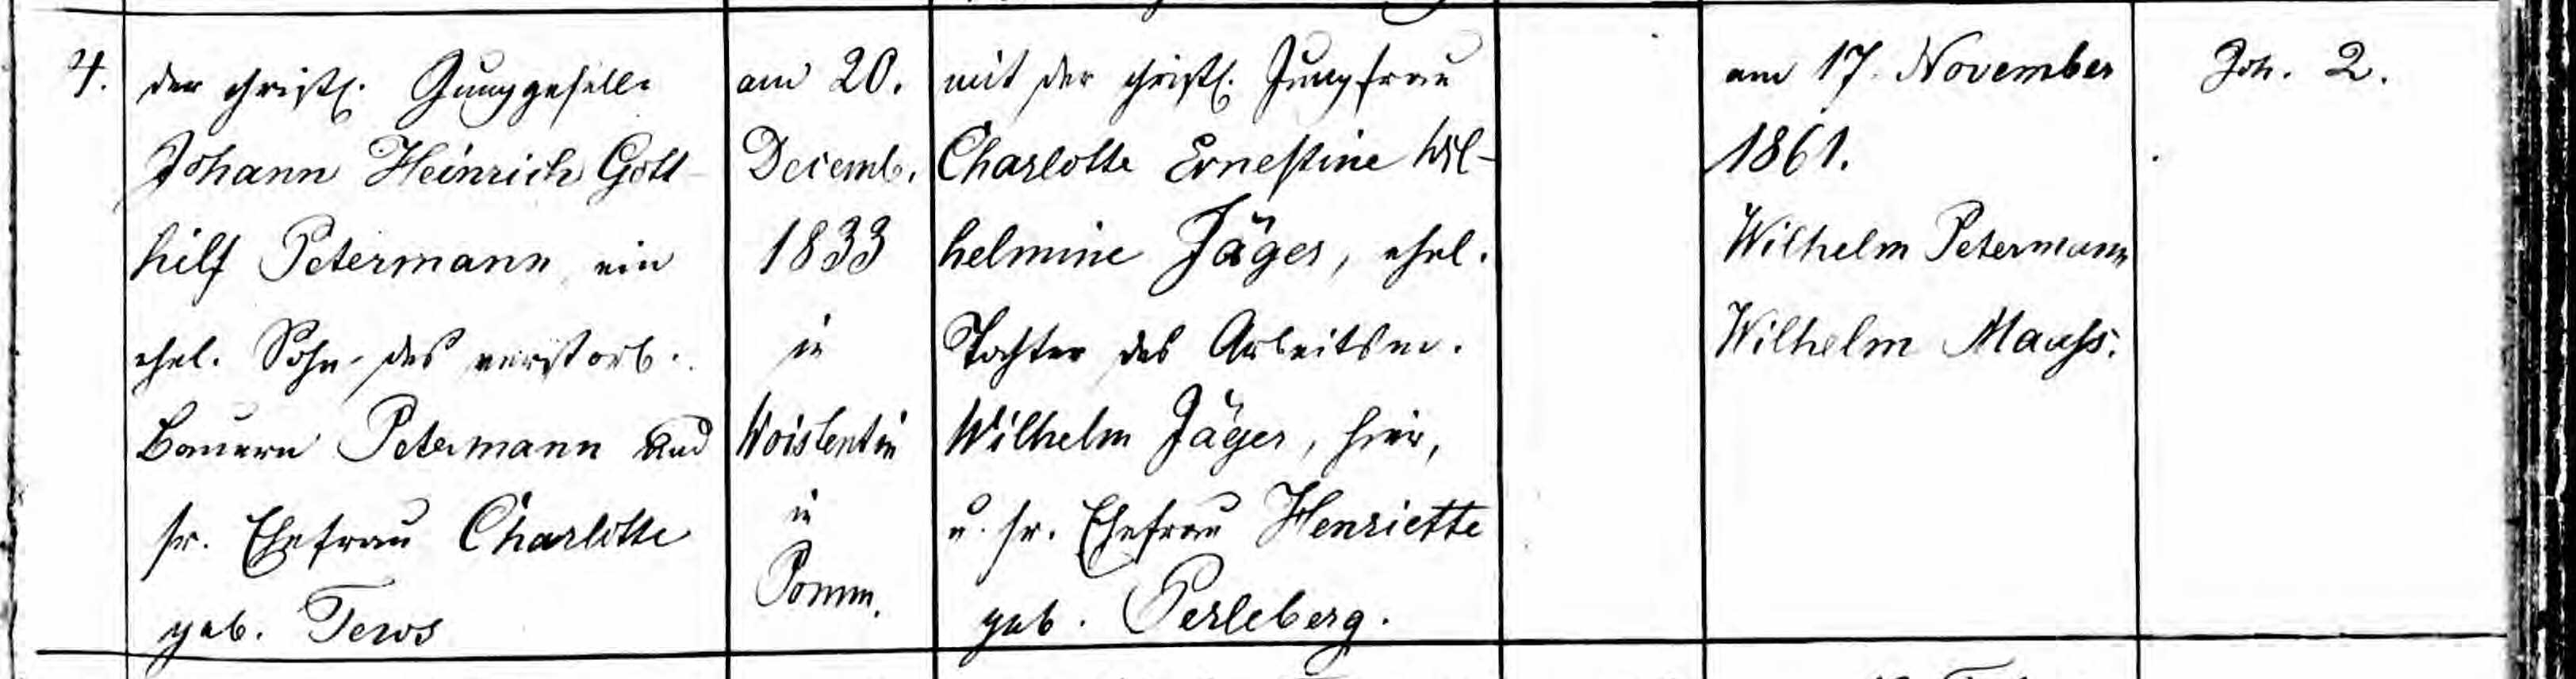 4.
der christl. Junggeselle
Johann Heinrich Gott-
hilf Petermann, ein
ehel. Sohn des verstorb.
Bauern Petermann und
sr. Ehefrau Charlotte
geb. Tews
am 20.
Decemb.
1833
in
Woistentin
in
Pomm.
mit der christl. Jungfrau
Charlotte Ernestine Wil-
helmine Jäger, ehel.
Tochter des Arbeitsm.
Wilhelm Jäger, hier,
u. sr. Ehefrau Henriette
geb. Perleberg.
am 17. November
1861.
Wilhelm Petermann
Wilhelm Mauss.
Joh. 2.